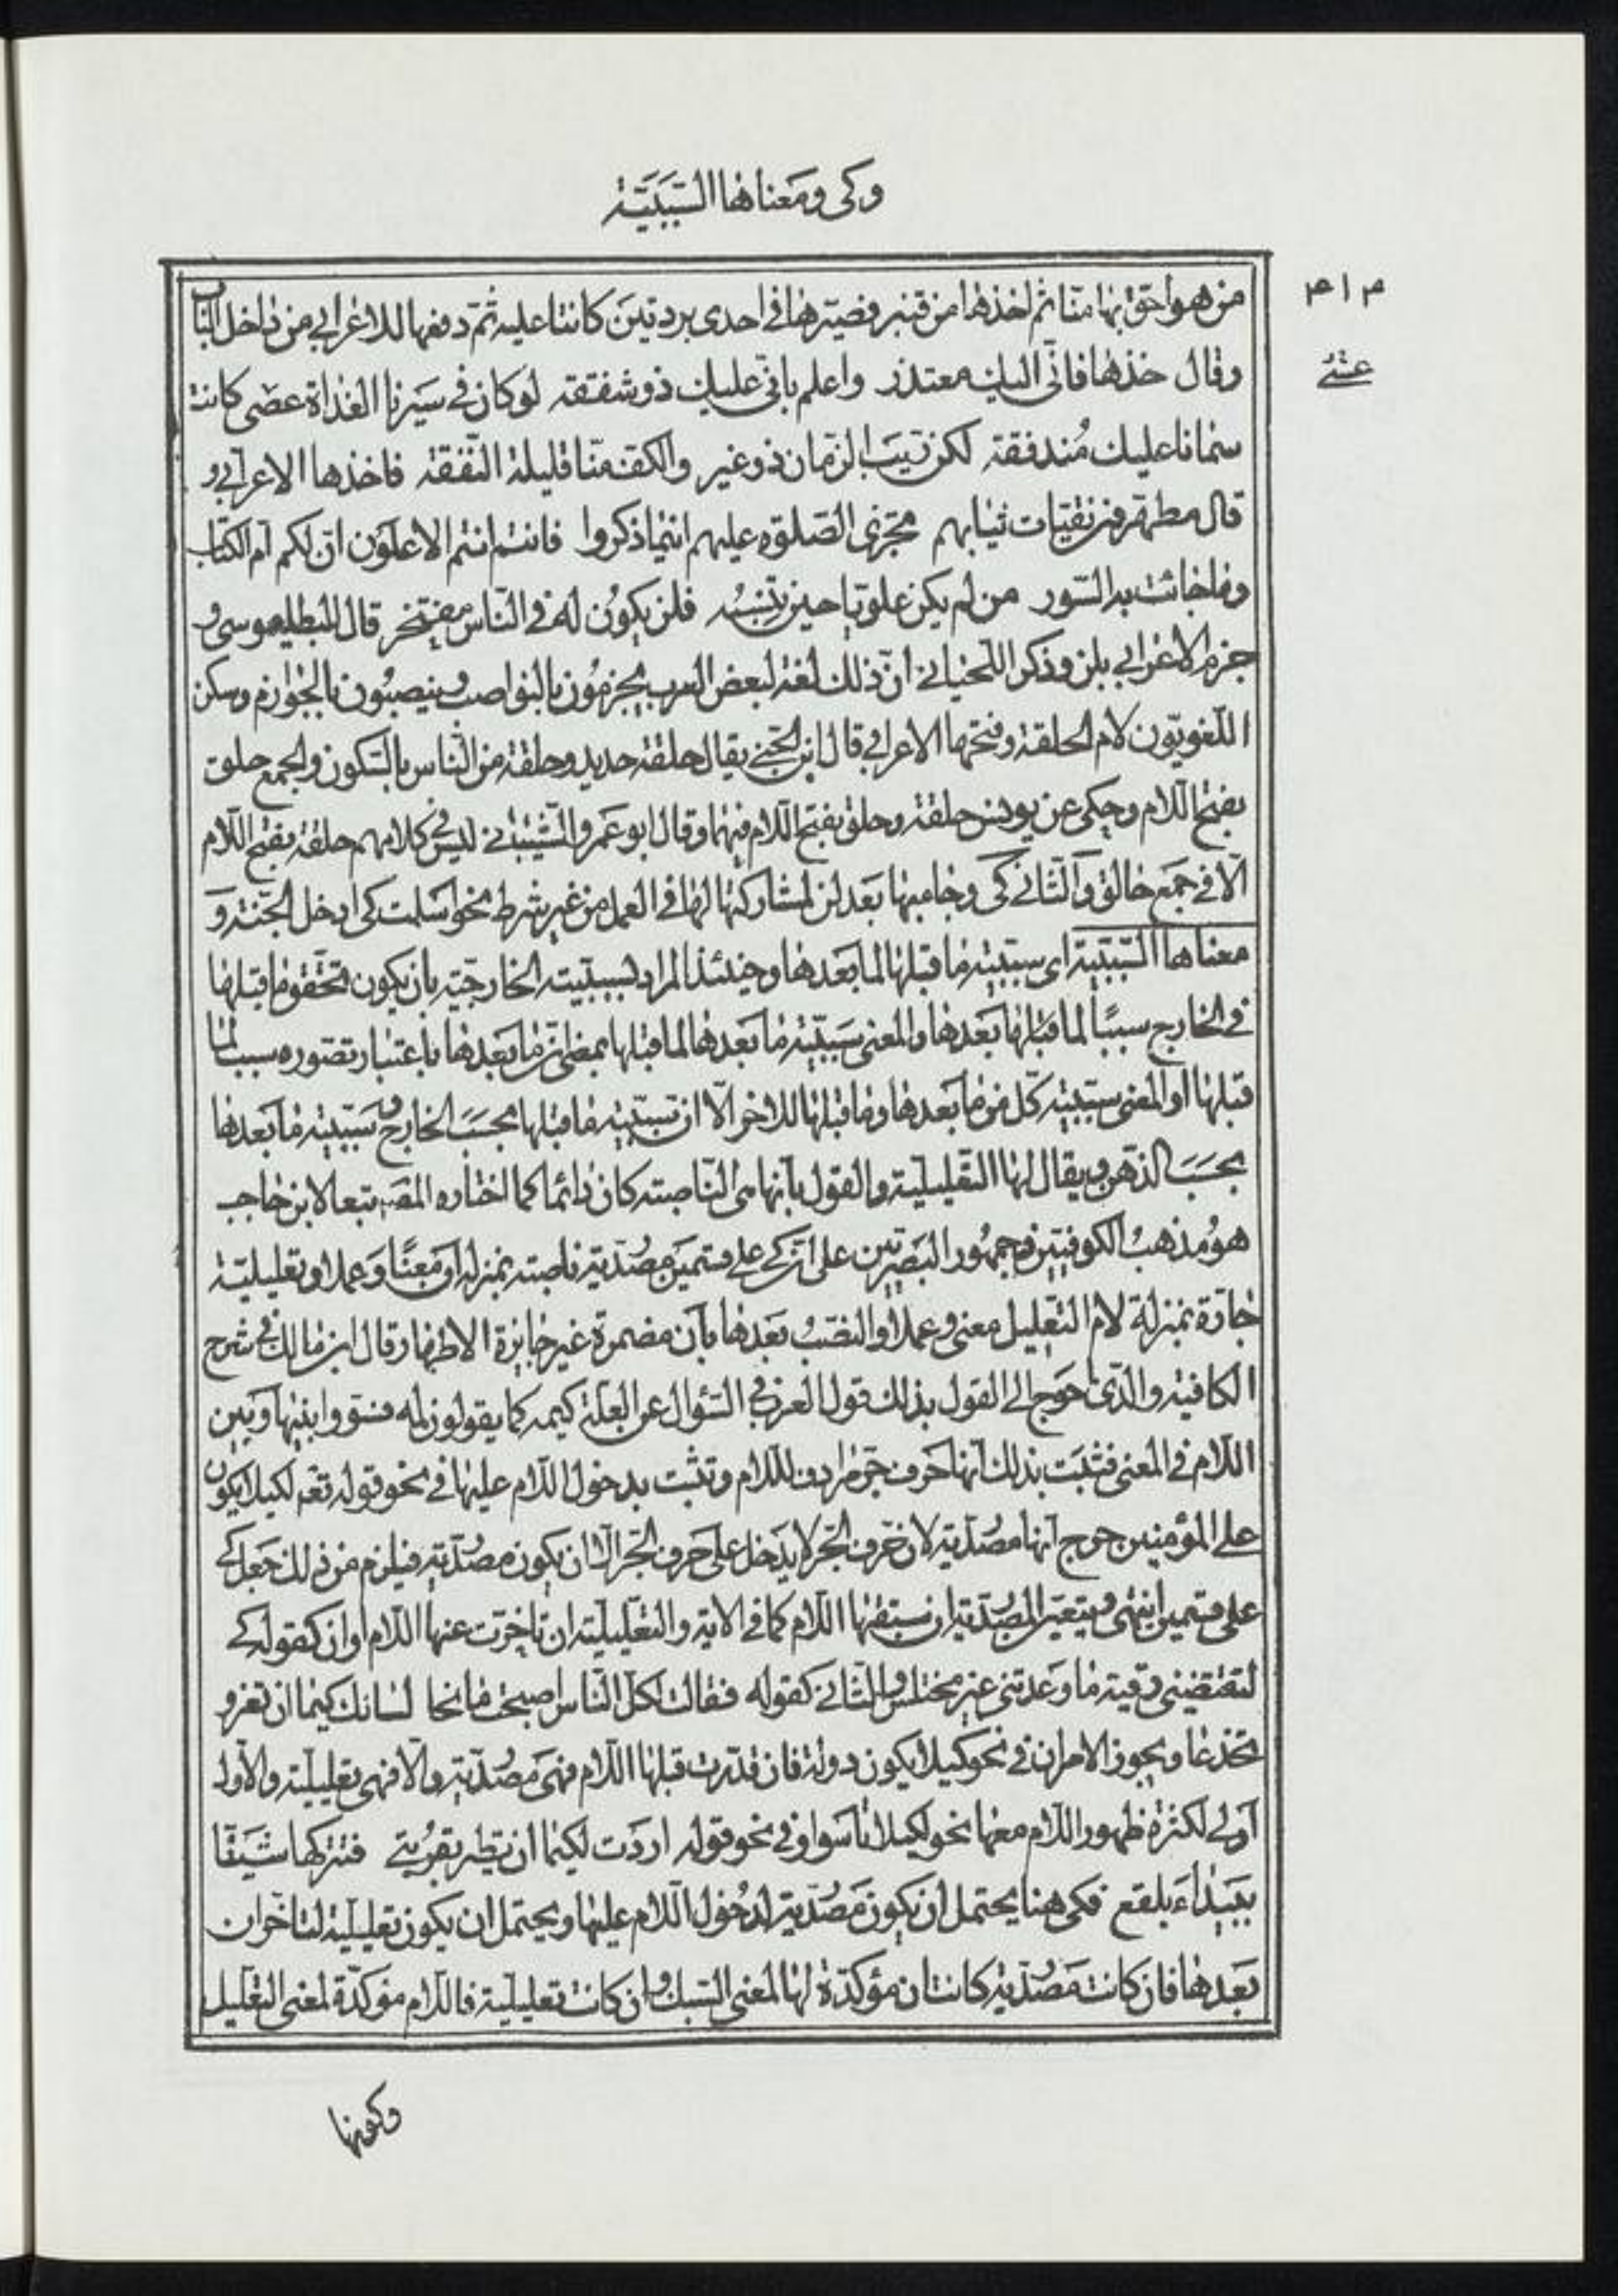 وكى ومعناها السّببيّة
٣١٣
من هو احق بها منّا ثم اخذها من قنبر فصيّرها فى احدى بردتين كانتا عليه ثمّ دفعها للاعرابى من داخل الباب
وقال خذها فانّى اليك معتذر واعلم بانّى عليك ذو شفقة لو كان فى سيرنا الغداة عصى كانت
سمانا عليك مندفقة لكن ريب الزمان ذو غير والكف منّا قليلة النّفقة فاخذها الاعرابى و
قال مطهّرون نقيات ثيابهم تجرى الصّلوة عليهم اينما ذكروا فانتم انتم الاعلون ان لكم ام الكتاب
وما جائت به السّور من لم يكن علويّا حين تنسبه فلن يكون له فى النّاس مفتخر قال البطليموسى و
جزم الاعرابى بلن وذكر اللّحيانى انّ ذلك لغة لبعض العرب يجزمون بالنواصب وينصبون بالجوازم وسكن
اللّغويّون لام الحلقة وفتحها الاعرابى قال ابن الجنّى يقال حلقة حديد وحلقة من النّاس بالسّكون والجمع حلق
بفتح اللّام وحكى عن يونس حلقة وحلق بفتح اللّام فيهما وقال ابو عمرو الشّيبانى ليس فى كلامهم حلقة بفتح اللّام
الّا فى جمع حالق والثّانى كى وجاء بها بعد لن لمشاركتها لها فى العمل من غير شرط نحو اسلمت كى ادخل الجنّة و
معناها السّببيّة اى سببيّة ما قبلها لما بعدها وحينئذ المراد لسببيّته الخارجيّة بان يكون تحقّق ما قبلها
فى الخارج سببًا لما قبلها بعدها والمعنى سببيّة ما بعدها لما قبلها بمعنى انّ ما بعدها باعتبار تصوّره سبب لما
قبلها او المعنى سببيّة كلّ من ما بعدها وما قبلها للاخر الّا ان سببيّة ما قبلها بحسب الخارج وسببيّة ما بعدها
بحسب الذّهن ويقال لها التّعليليّة والقول بانّها هى النّاصبة كان دائما كما اختاره المص تبعا لابن حاجب
هو مذهب الكوفيّين وجمهور البصريّين على ان كى على قسمين مصدريّة ناصبة بمنزلة ان معنًا وعملا وتعليليّة
جارّة بمنزلة لام التّعليل معنى وعملا والنّصب بعدها بأن مضمرة غير جايزة الاظهار وقال ابن مالك فى شرح
الكافية والّذى احوج الى القول بذلك قول العرب فى السّؤال عن العلّة كيمه كما يقولون لمه فسوّوا بينها وبين
اللّام فى المعنى فثبت بذلك انّها حرف جرّ مرادف للام وتثبت بدخول اللّام عليها فى نحو قوله تعم لكيلا يكون
على المؤمنين حرج انّها مصدريّة لان حرف الجرّ لا يدخل على حرف الجرّ الّا ان يكون مصدريّة فيلزم من ذلك جعل كى
على قسمين انتهى ويتعيّن المصدريّة ان سبقتها اللّام كما فى الاية والتّعليليّة ان تاخّرت عنها اللّام او ان كقوله كى
لتقضينى رقيّة ما وعدتنى غير مختلس والثّانى كقوله فقالت اكلّ النّاس اصبحت مانحا لسانك كيما ان تغرو
تخدعا ويجوز الامران فى نحو كيلا يكون دولة فان قدّرت قبلها اللّام فهى مصدريّة والّا فهى تعليليّة والاول
اولى لكثرة ظهور اللّام معها نحو لكيلا تاسوا وفى نحو قوله اردت لكيما ان تطير بقربتى فتتركها شنّا
ببيداء بلقع فكى هنا يحتمل ان يكون مصدريّة لدخول اللّام عليها ويحتمل ان يكون تعليليّة لتاخر ان
بعدها فان كانت مصدريّة كانت ان مؤكدّة لها لمعنى السّبك وان كانت تعليليّة فاللّام مؤكدّة لمعنى التعليل
وكونها